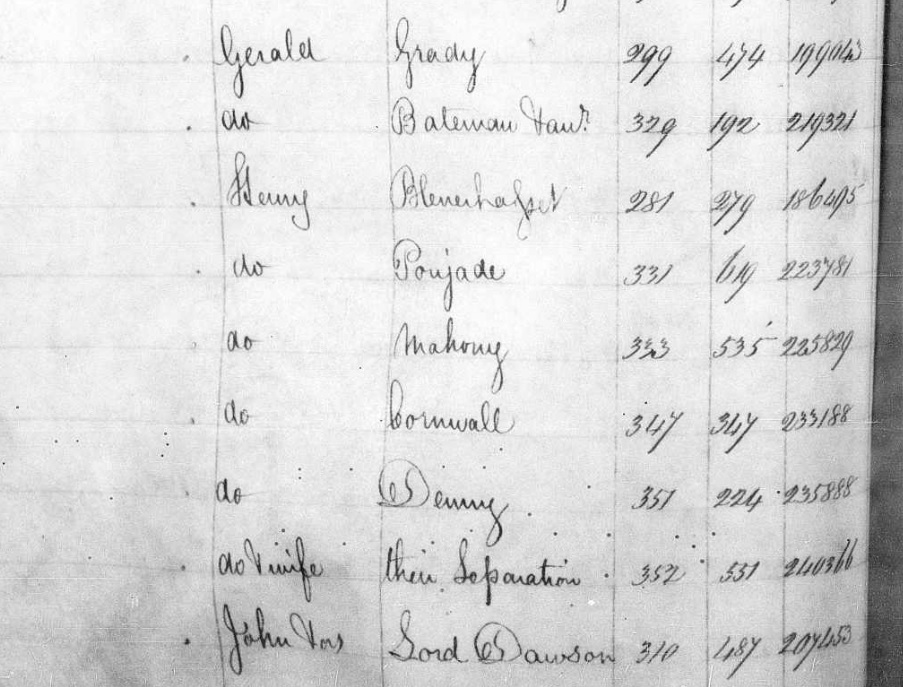 Gerald Grady 299 474 199043
do Bateman &anr. 329 192 219321
Henry Blenerhasset 281 279 186495
do Poujade 331 619 223781
do Mahony 333 535 225829
do Cornwall 347 347 233188
do Denny 351 224 235888
do & wife their Separation 352 551 240366
John &ors Lord Dawson 310 487 207453